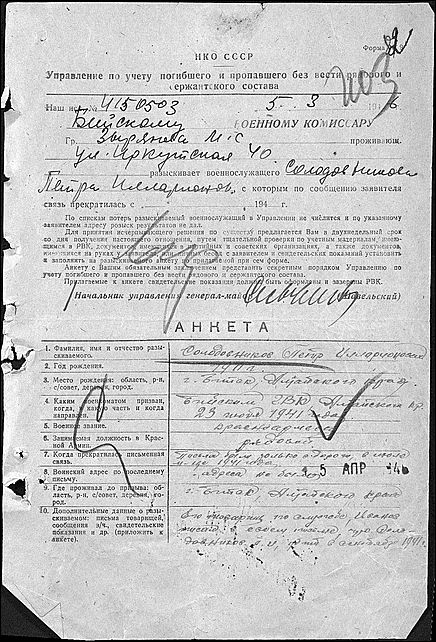 Форма
НКО СССР
Управление по учету погибшего и пропавшего без вести рядового и
сержантского состава
Наш исх. № 4150503 5. 3 194 6
Бийскому ВОЕННОМУ КОМИССАРУ
Гр. Зырянова М. С проживающ.
ул. Иркутская 40
разыскивает военнослужащего Солодовникова
Петра Илларионов. с которым по сообщению заявителя
связь прекратилась с 194 г.
По спискам потерь разыскиваемый военнослужащий в Управлении не числится и по указанному
заявителем адресу розыск результатов не дал.
Для принятия исчерпывающего решения по существу предлагается Вам в двухнедельный срок
со дня получения настоящего отношения, путем тщательной проверки по учетным материалам, имею-
щимся в РВК, документам партийных и советских организаций, а также документов,
имеющихся на руках у заявителя и свидетельских показаний установить
и заполнить на разыскиваемого анкету по приведенной при сем форме.
Анкету с Вашим обязательным заключением представить секретным порядком Управлению по
учету погибшего и пропавшего без вести рядового и сержантского состава.
Прилагаемые к анкете свидетельские показания должны быть оформлены и заверены РВК.
Начальник управления генерал-майор
АНКЕТА
1. Фамилия, имя и отчество разы-
скиваемого. Солодовников Петр Илларионович
2. Год рождения.
3. Место рождения: область, р-н,
с/совет, деревня, город. г. Бийск, Алтайского края
4. Каким военкоматом призван,
когда, в какую часть и когда
направлен. Бийским ГВК Алтайского кр
23 июля 1941 года
5. Военное звание. красноармеец
6. Занимаемая должность в Крас-
ной Армии. рядовой
7. Когда прекратилась письмен-
ная связь.
8. Воинский адрес по последнему
письму. адреса не было
15 АПР 46
9. Где проживал до призыва: об-
ласть, р-н, с/совет, деревня, город. г. Бийск, Алтайского края
10. Дополнительные данные о разы-
скиваемом: письма товарищей,
сообщения в/ч, свидетельские
показания и др. (приложить к
анкете).